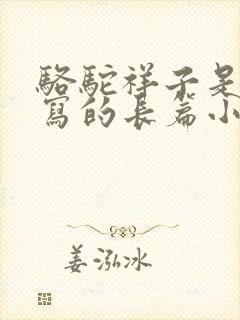 駱駝祥子是
寫的長篇小
姜泓冰